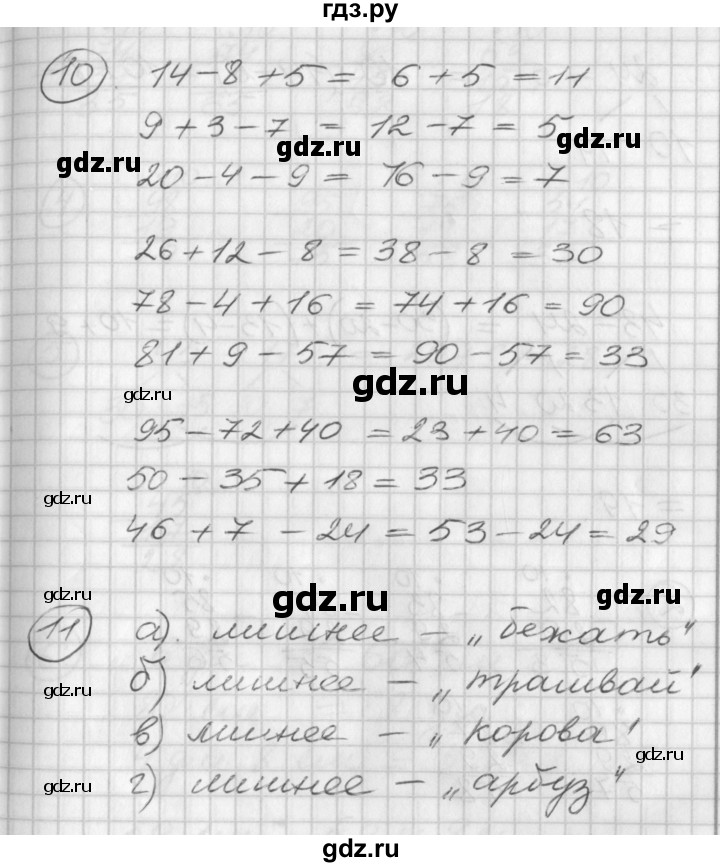 гдз.ру
10. 14 - 8 + 5 = 6 + 5 = 11
9 + 3 - 7 = 12 - 7 = 5
gdz.ru
gdz.ru
gdz.ru
20 - 4 - 9 = 16 - 9 = 7
26 + 12 - 8 = 38 - 8 = 30
78 - 4 + 16 = 74 + 16 = 90
81 + 9 - 57 = 90 - 57 = 33
gdz.ru
gdz.ru
95 - 72 + 40 = 23 + 40 = 63
50 - 35 + 18 = 33
gdz.ru
46 + 7 - 24 = 53 - 24 = 29
gdz.ru
gdz.ru
gdz.ru
11 а). лишнее - „бежать"
б) лишнее - „трамвай'
gdz.ru
в) лишнее - „корова'
г) лишнее - „арбуз"
gdz.ru
gdz.ru
gdz.ru